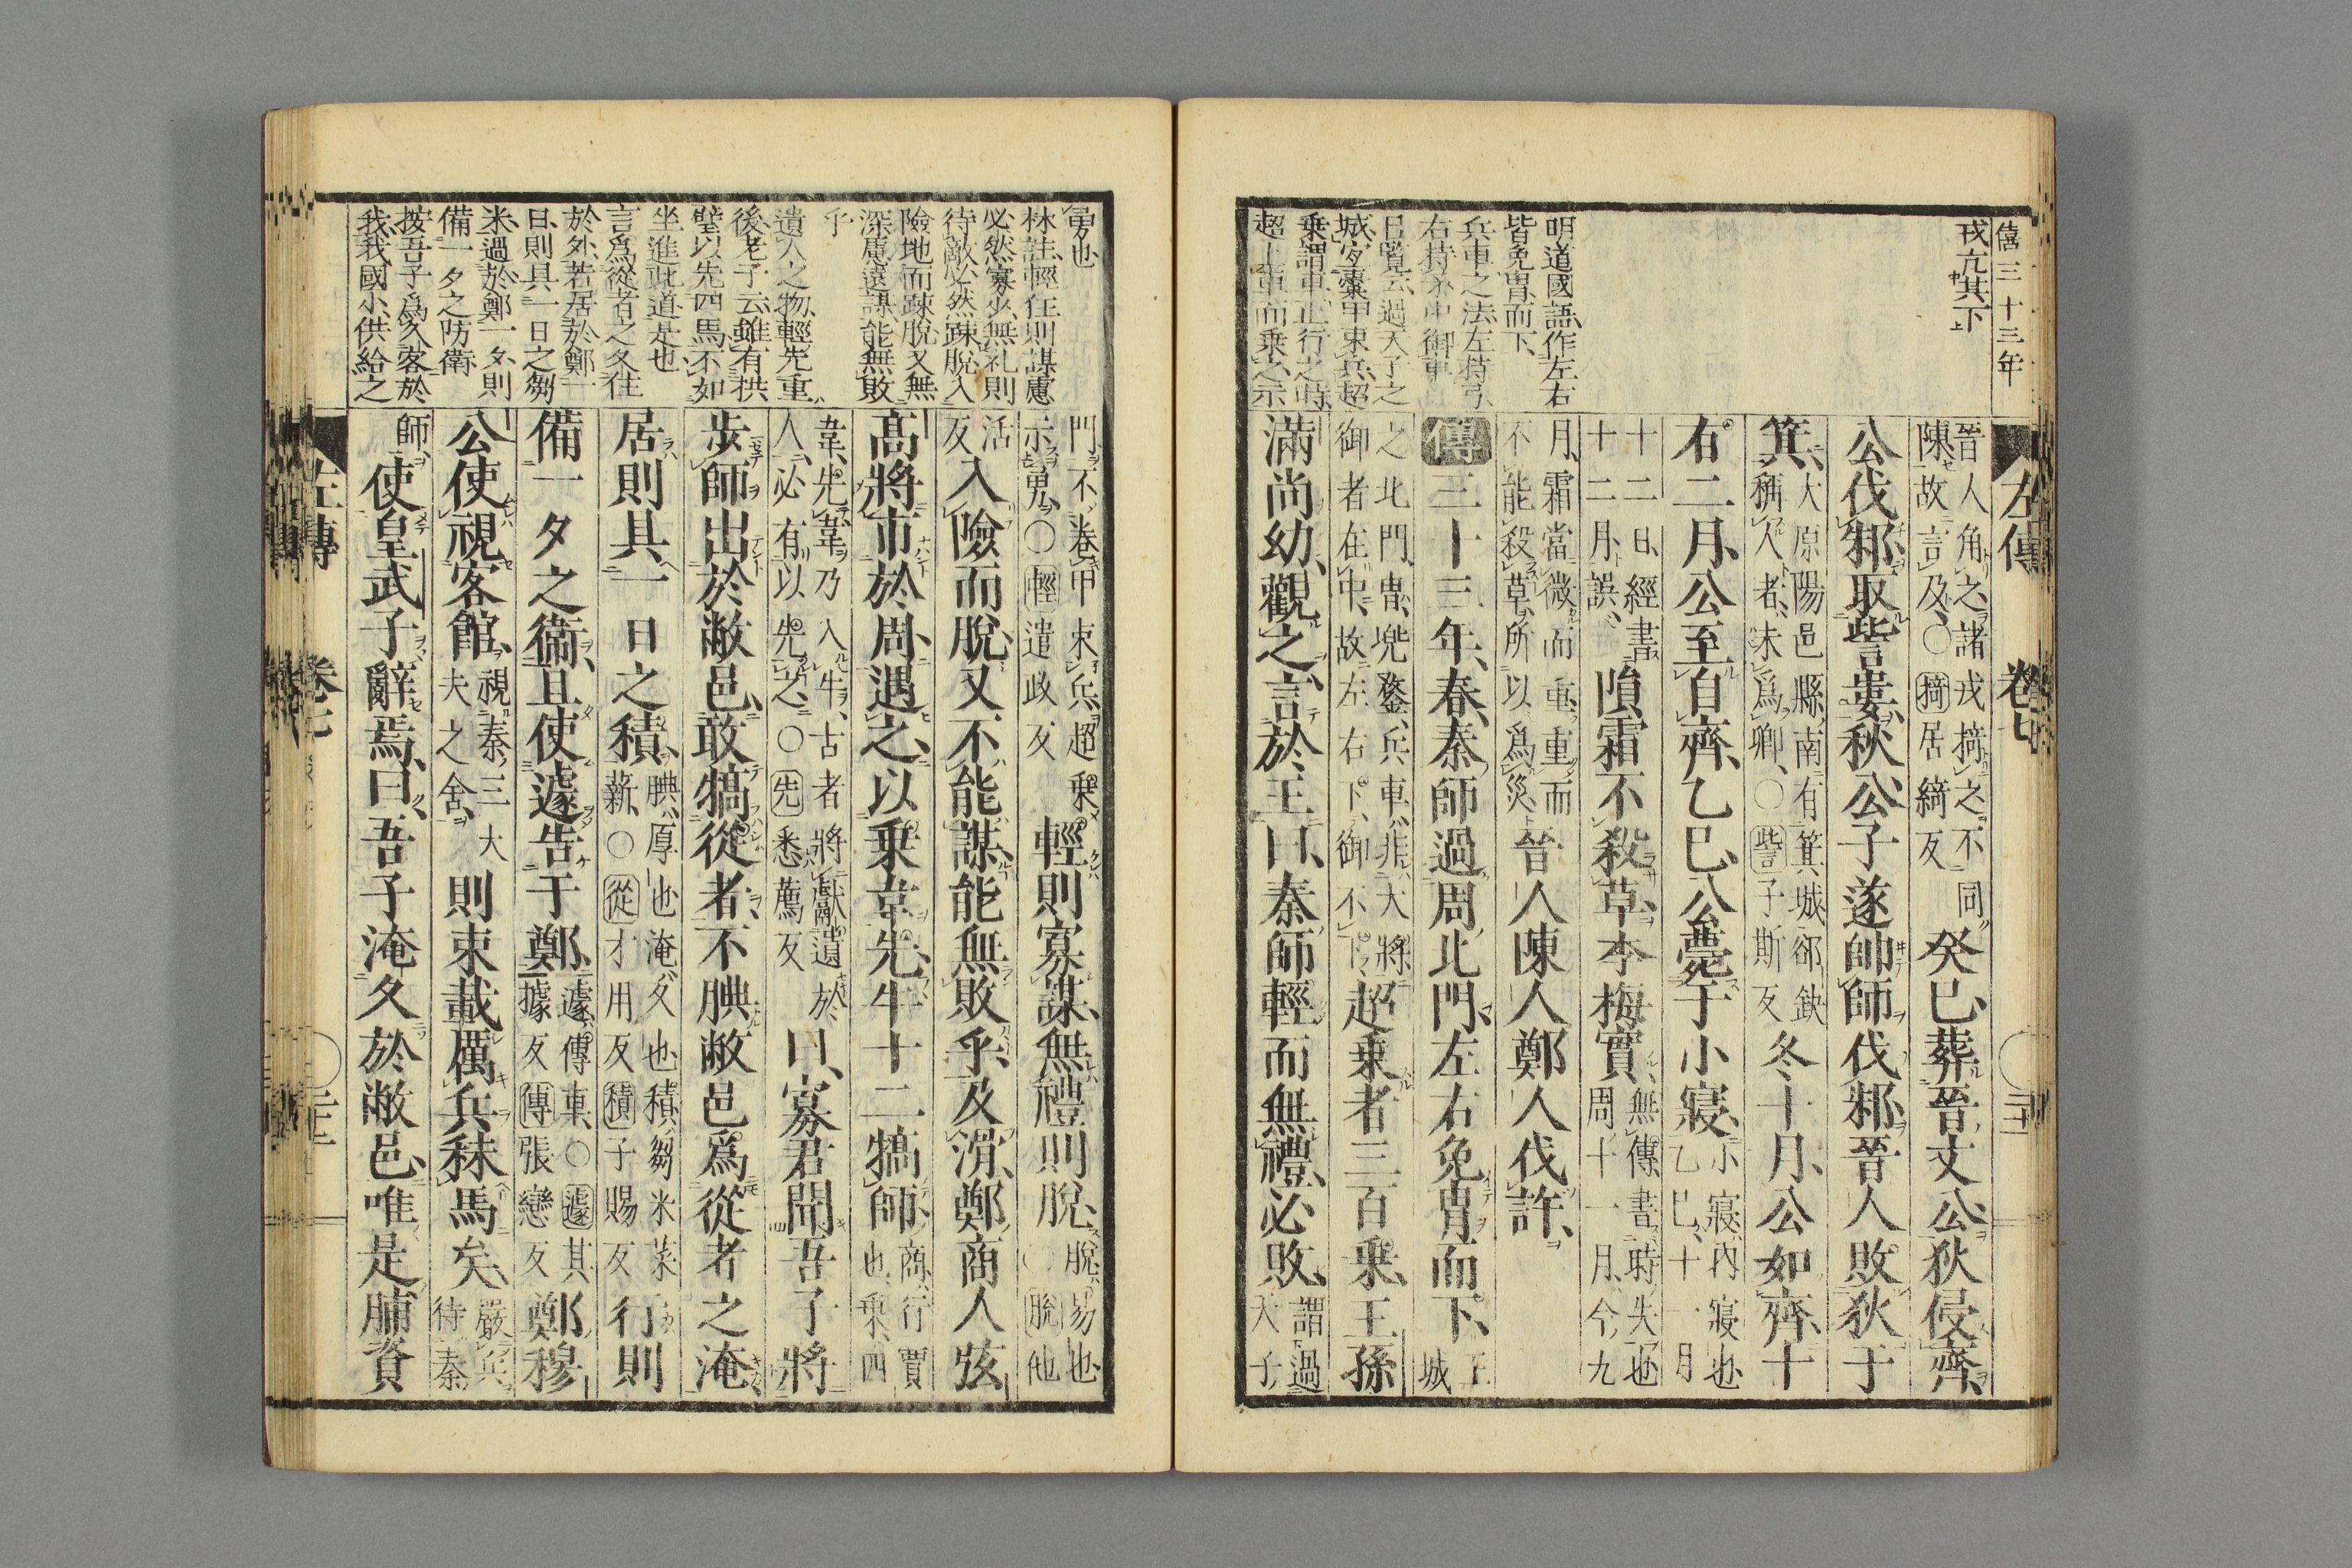 僖三十三年
戎亢其下
明道國語作左右
皆免胄而下
兵車之法左持弓
右持矛中御車
呂覽云過天子之
城宜櫜甲束兵超
乗謂車正行之時
超上車而乗之示
左傳 卷七
晉人角之諸戎掎之不同
陳故言及○掎居綺反
癸巳葬晉文公狄侵齊
公伐邾取訾婁秋公子遂帥師伐邾晉人敗狄于
箕
大原陽邑縣南有箕城郤缺
稱人者未爲卿○訾子斯反
冬十月公如齊十
有二月公至自齊乙巳公薨于小寢
小寢内寢也
乙巳十一月
十二日經書
十二月誤
隕霜不殺草李梅實
無傳書時失也
周十一月今九
月霜當微而重重而
不能殺草所以爲災
晉人陳人鄭人伐許
傳三十三年春秦師過周北門左右免胄而下
王城
之北門胄兜鍪兵車非大將
御者在中故左右下御不下
超乗者三百乗王孫
滿尚幼觀之言於王曰秦師輕而無禮必敗
謂過
天子
勇也
林註輕狂則謀慮
必然寡少無礼則
待敵必然疎脫入
險地而疎脫又無
深慮遠謀能無敗
乎
遺人之物輕先重
後老子云雖有拱
璧以先四馬不如
坐進此道是也
言爲從者之久住
於外若居於鄭一
日則具一日之芻
米過於鄭一夕則
備一夕之防衛
按吾子爲久客於
我我國小供給之
門不卷甲束兵超乗
示勇○輕遣政反
輕則寡謀無禮則脫
脫易也
○脫他
活
反
入險而脫又不能謀能無敗乎及滑鄭商人弦
高將市於周遇之以乗韋先牛十二犒師
商行賈
也乗四
韋先韋乃入牛古者將獻遺於
人必有以先之○先悉薦反
曰寡君聞吾子將
步師出於敝邑敢犒從者不腆敝邑爲從者之淹
居則具一日之積
腆厚也淹久也積芻米菜
薪○從才用反積子賜反
行則
備一夕之衛且使遽告于鄭
遽傳車○遽其
據反傳張戀反
鄭穆
公使視客館
視秦三大
夫之舍
則束載厲兵秣馬矣
嚴兵
待秦
師
使皇武子辭焉曰吾子淹久於敝邑唯是脯資
左傳 卷七